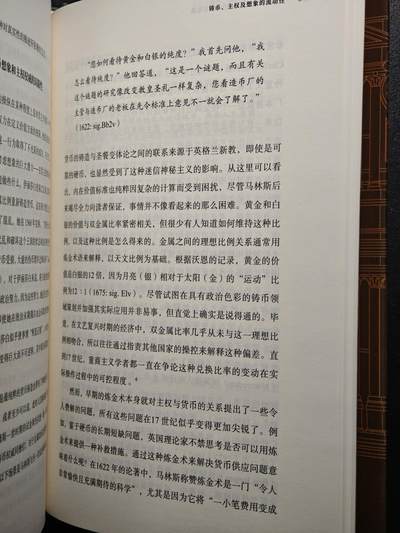 铸币、主权及想象的流动性
“您如何看待黄金和白银的纯度？”我首先问他，“我
怎么看待纯度？”他回答道，“这是一个谜题，而且有关
这个谜题的研究像改变教皇圣礼一样复杂，您看造币厂的
主管与造币厂的老板在先令标准上意见不一就会了解了。”
（1622: sig.Bb2v）
货币的铸造与圣餐变体论之间的联系来源于英格兰新教，即使是可
靠的硬币，也显然受到了这种迷信神秘主义的影响。从这里可以看
出，内在价值标准也纯粹因复杂的计算而受到困扰，尽管马林斯后
来竭尽全力向读者保证，事情并不像看起来的那么困难。黄金和白
银的价值与双金属比率紧密相关，但很少有人知道如何维持这种比
例，以及这种比例是怎么得来的。金属之间的理想比例关系通常用
炼金术语来解释，以天文比例为基础。根据沃恩的记录，黄金的价
值是白银的12倍，因为月亮（银）相对于太阳（金）的“运动”比
例为12∶1（1675: sig. Elv）。尽管试图在具有政治色彩的铸币领
域规划并加强其实际应用并非易事，但直觉上确实是说得通的。毕
竟，在文艺复兴时期的经济中，双金属比率几乎从未与这一理想比
例相吻合，所以往往通过指责其他国家的操控来解释这种偏差。直
到17世纪，重商主义学者都一直在争论这种兑换比率的变动在实
际操作过程中的可控程度。⁴
然而，早期的炼金术本身就对主权与货币的关系提出了一些令
人费解的问题，所有这些问题在17世纪似乎变得更加尖锐了。例
如，鉴于硬币的长期短缺问题，英国理论家不禁思考是否可以用炼
金术来提供一种补救措施。通过这种炼金术来解决货币供应问题意
味着什么呢？在1622年的论著中，马林斯称赞炼金术是一门“令人
非常愉快且充满期待的科学”，尤其是因为它将“一小笔费用变成